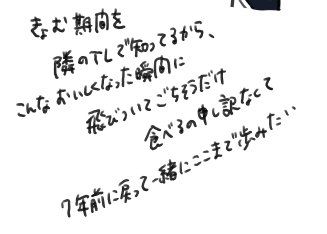 きょむ期間を
隣のTLで知ってるから、
こんなおいしくなった瞬間に
飛びついてごちそうだけ
食べるの申し訳なくて
7年前に戻って一緒にここまで歩みたい